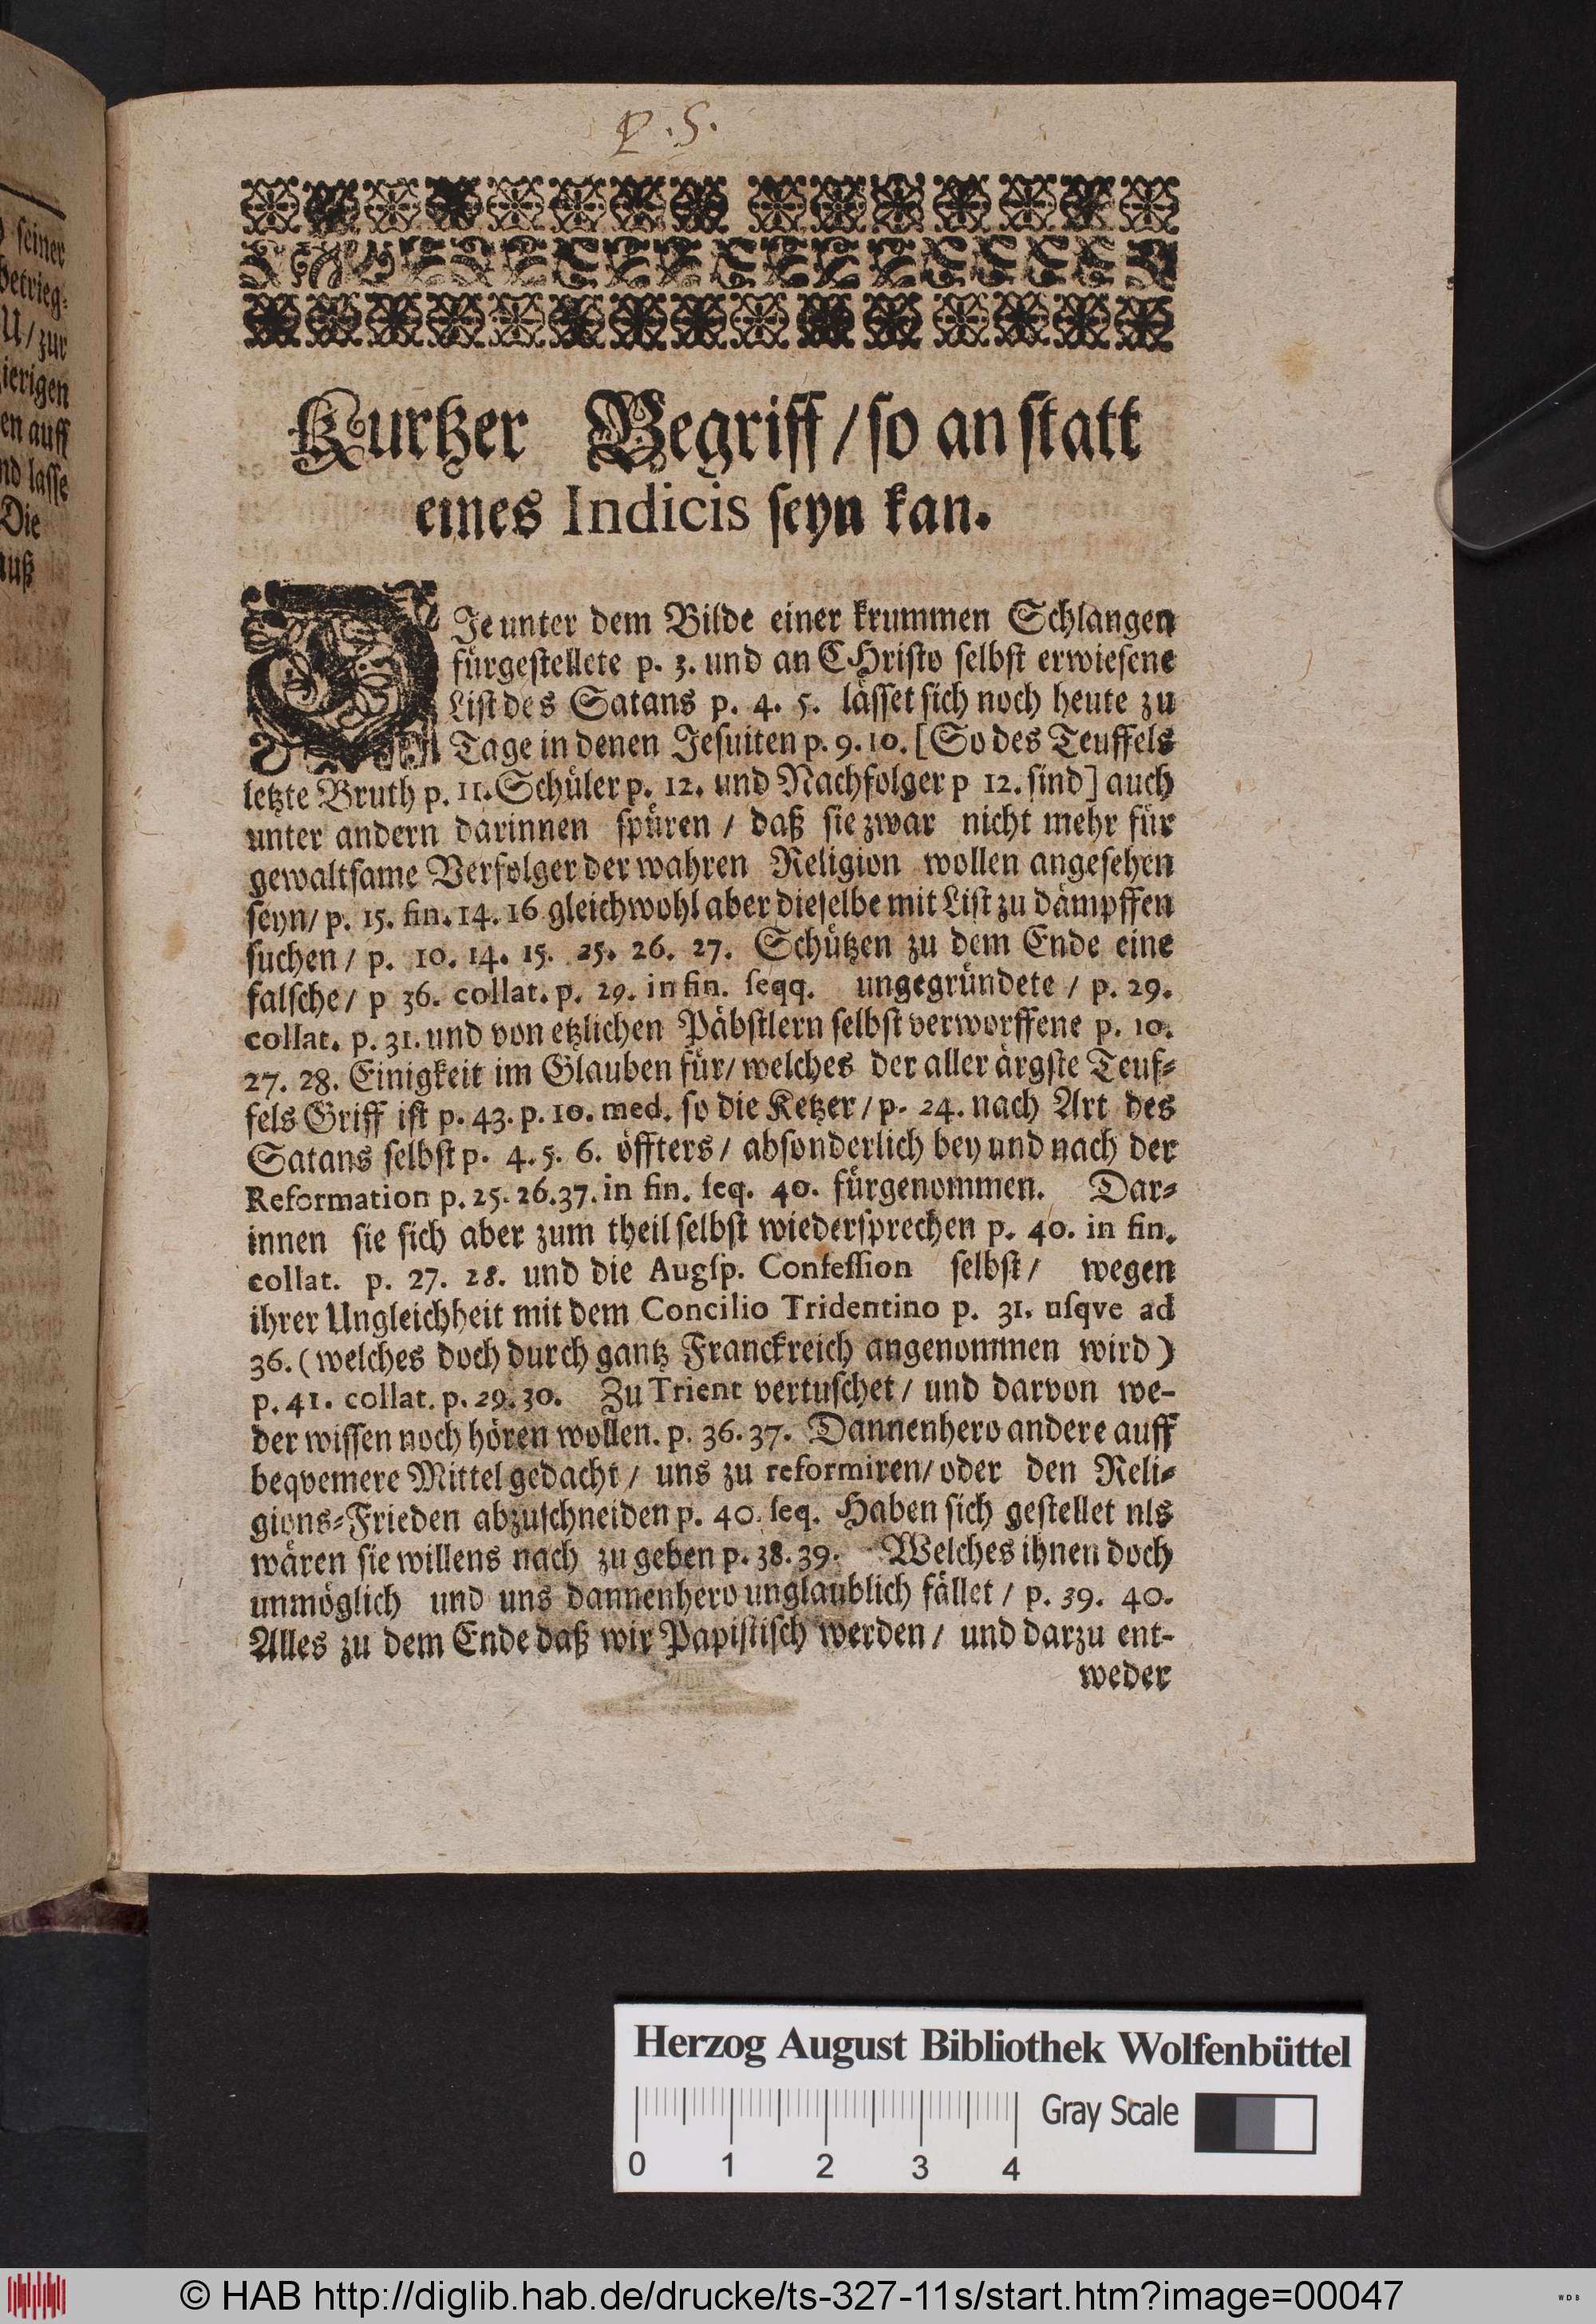 P. S.
seiner
betrieg⸗
U/ zur
ierigen
en auff
nd lasse
Die
auß
Kurtzer Begriff / so an statt
eines Indicis seyn kan.
DJe unter dem Bilde einer krummen Schlangen
fürgestellete p. 3. und an CHristo selbst erwiesene
List des Satans p. 4. 5. lässet sich noch heute zu
Tage in denen Jesuiten p. 9. 10. [So des Teuffels
letzte Bruth p. 11. Schüler p. 12. und Nachfolger p 12. sind] auch
unter andern darinnen spüren / daß sie zwar nicht mehr für
gewaltsame Verfolger der wahren Religion wollen angesehen
seyn/ p. 15. fin. 14. 16 gleichwohl aber dieselbe mit List zu dämpffen
suchen / p. 10. 14. 15. 25. 26. 27. Schützen zu dem Ende eine
falsche / p 36. collat. p. 29. in fin. seqq. ungegründete / p. 29.
collat. p. 31. und von etzlichen Päbstlern selbst verworffene p. 10.
27. 28. Einigkeit im Glauben für/ welches der aller ärgste Teuf⸗
fels Griff ist p. 43. p. 10. med. so die Ketzer / p. 24. nach Art des
Satans selbst p. 4. 5. 6. öffters / absonderlich bey und nach der
Reformation p. 25. 26. 37. in fin. seq. 40. fürgenommen. Dar⸗
innen sie sich aber zum theil selbst wiedersprechen p. 40. in fin.
collat. p. 27. 28. und die Augsp. Confession selbst / wegen
ihrer Ungleichheit mit dem Concilio Tridentino p. 31. usqve ad
36. (welches doch durch gantz Franckreich angenommen wird)
p. 41. collat. p. 29. 30. Zu Trient vertuschet / und darvon we-
der wissen noch hören wollen. p. 36. 37. Dannenhero andere auff
beqvemere Mittel gedacht / uns zu reformiren/ oder den Reli⸗
gions⸗Frieden abzuschneiden p. 40. seq. Haben sich gestellet nls
wären sie willens nach zu geben p. 38. 39. Welches ihnen doch
unmöglich und uns dannenhero unglaublich fället / p. 39. 40.
Alles zu dem Ende daß wir Papistisch werden / und darzu ent-
weder
Herzog August Bibliothek Wolfenbüttel
Gray Scale
0 1 2 3 4
© HAB http://diglib.hab.de/drucke/ts-327-11s/start.htm?image=00047
WDB